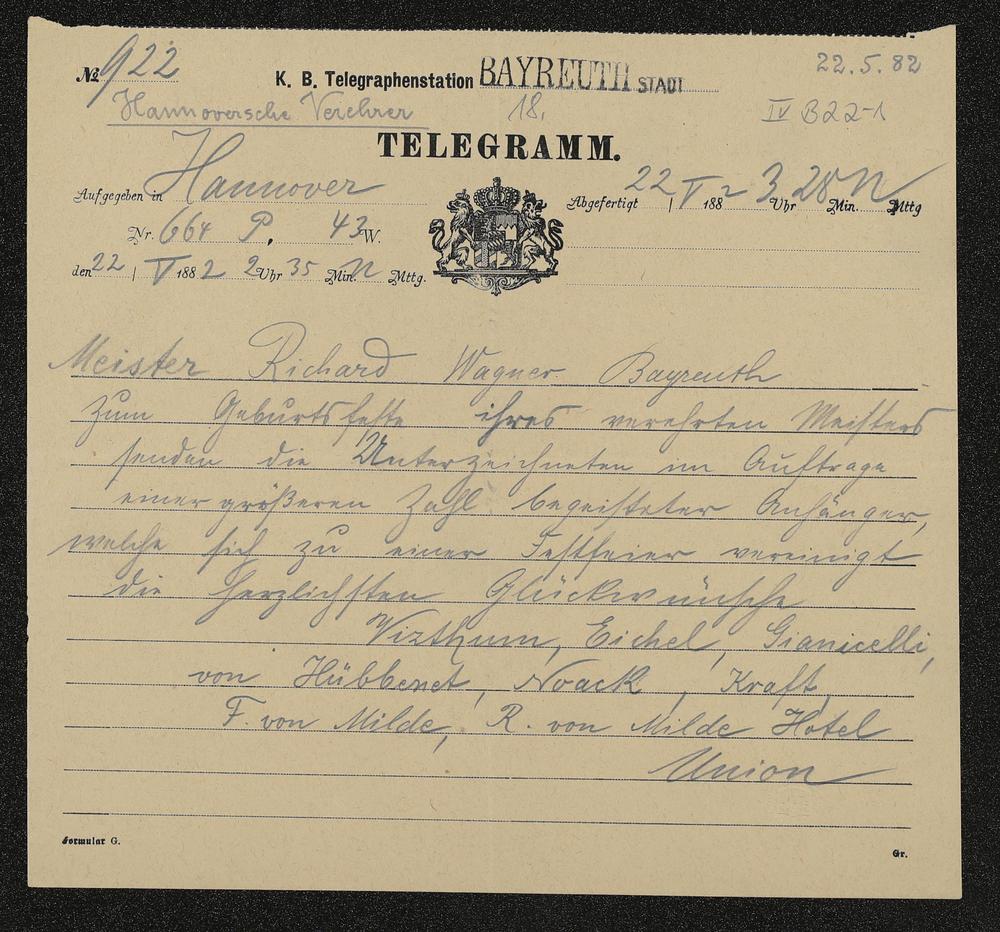 № 922
K. B. Telegraphenstation BAYREUTH STADT
22.5.82
Hannoversche Verehrer
18.
IV B 22-1
TELEGRAMM.
Aufgegeben in Hannover
Abgefertigt 22 | V 1882 3 Uhr 28 Min. N Mttg
Nr. 664 P. 43 W.
den 22 | V 1882 2 Uhr 35 Min. N Mttg.
Meister Richard Wagner Bayreuth
Zum Geburtsfeste ihres verehrten Meisters
senden die Unterzeichneten im Auftrage
einer größeren Zahl begeisterter Anhänger,
welche sich zu einer Festfeier vereinigt
die herzlichsten Glückwünsche
Vizthum, Eichel, Gianicelli,
von Hübbenet, Noack, Kraft,
F. von Milde, R. von Milde Hotel
Union
Formular G.
Gr.